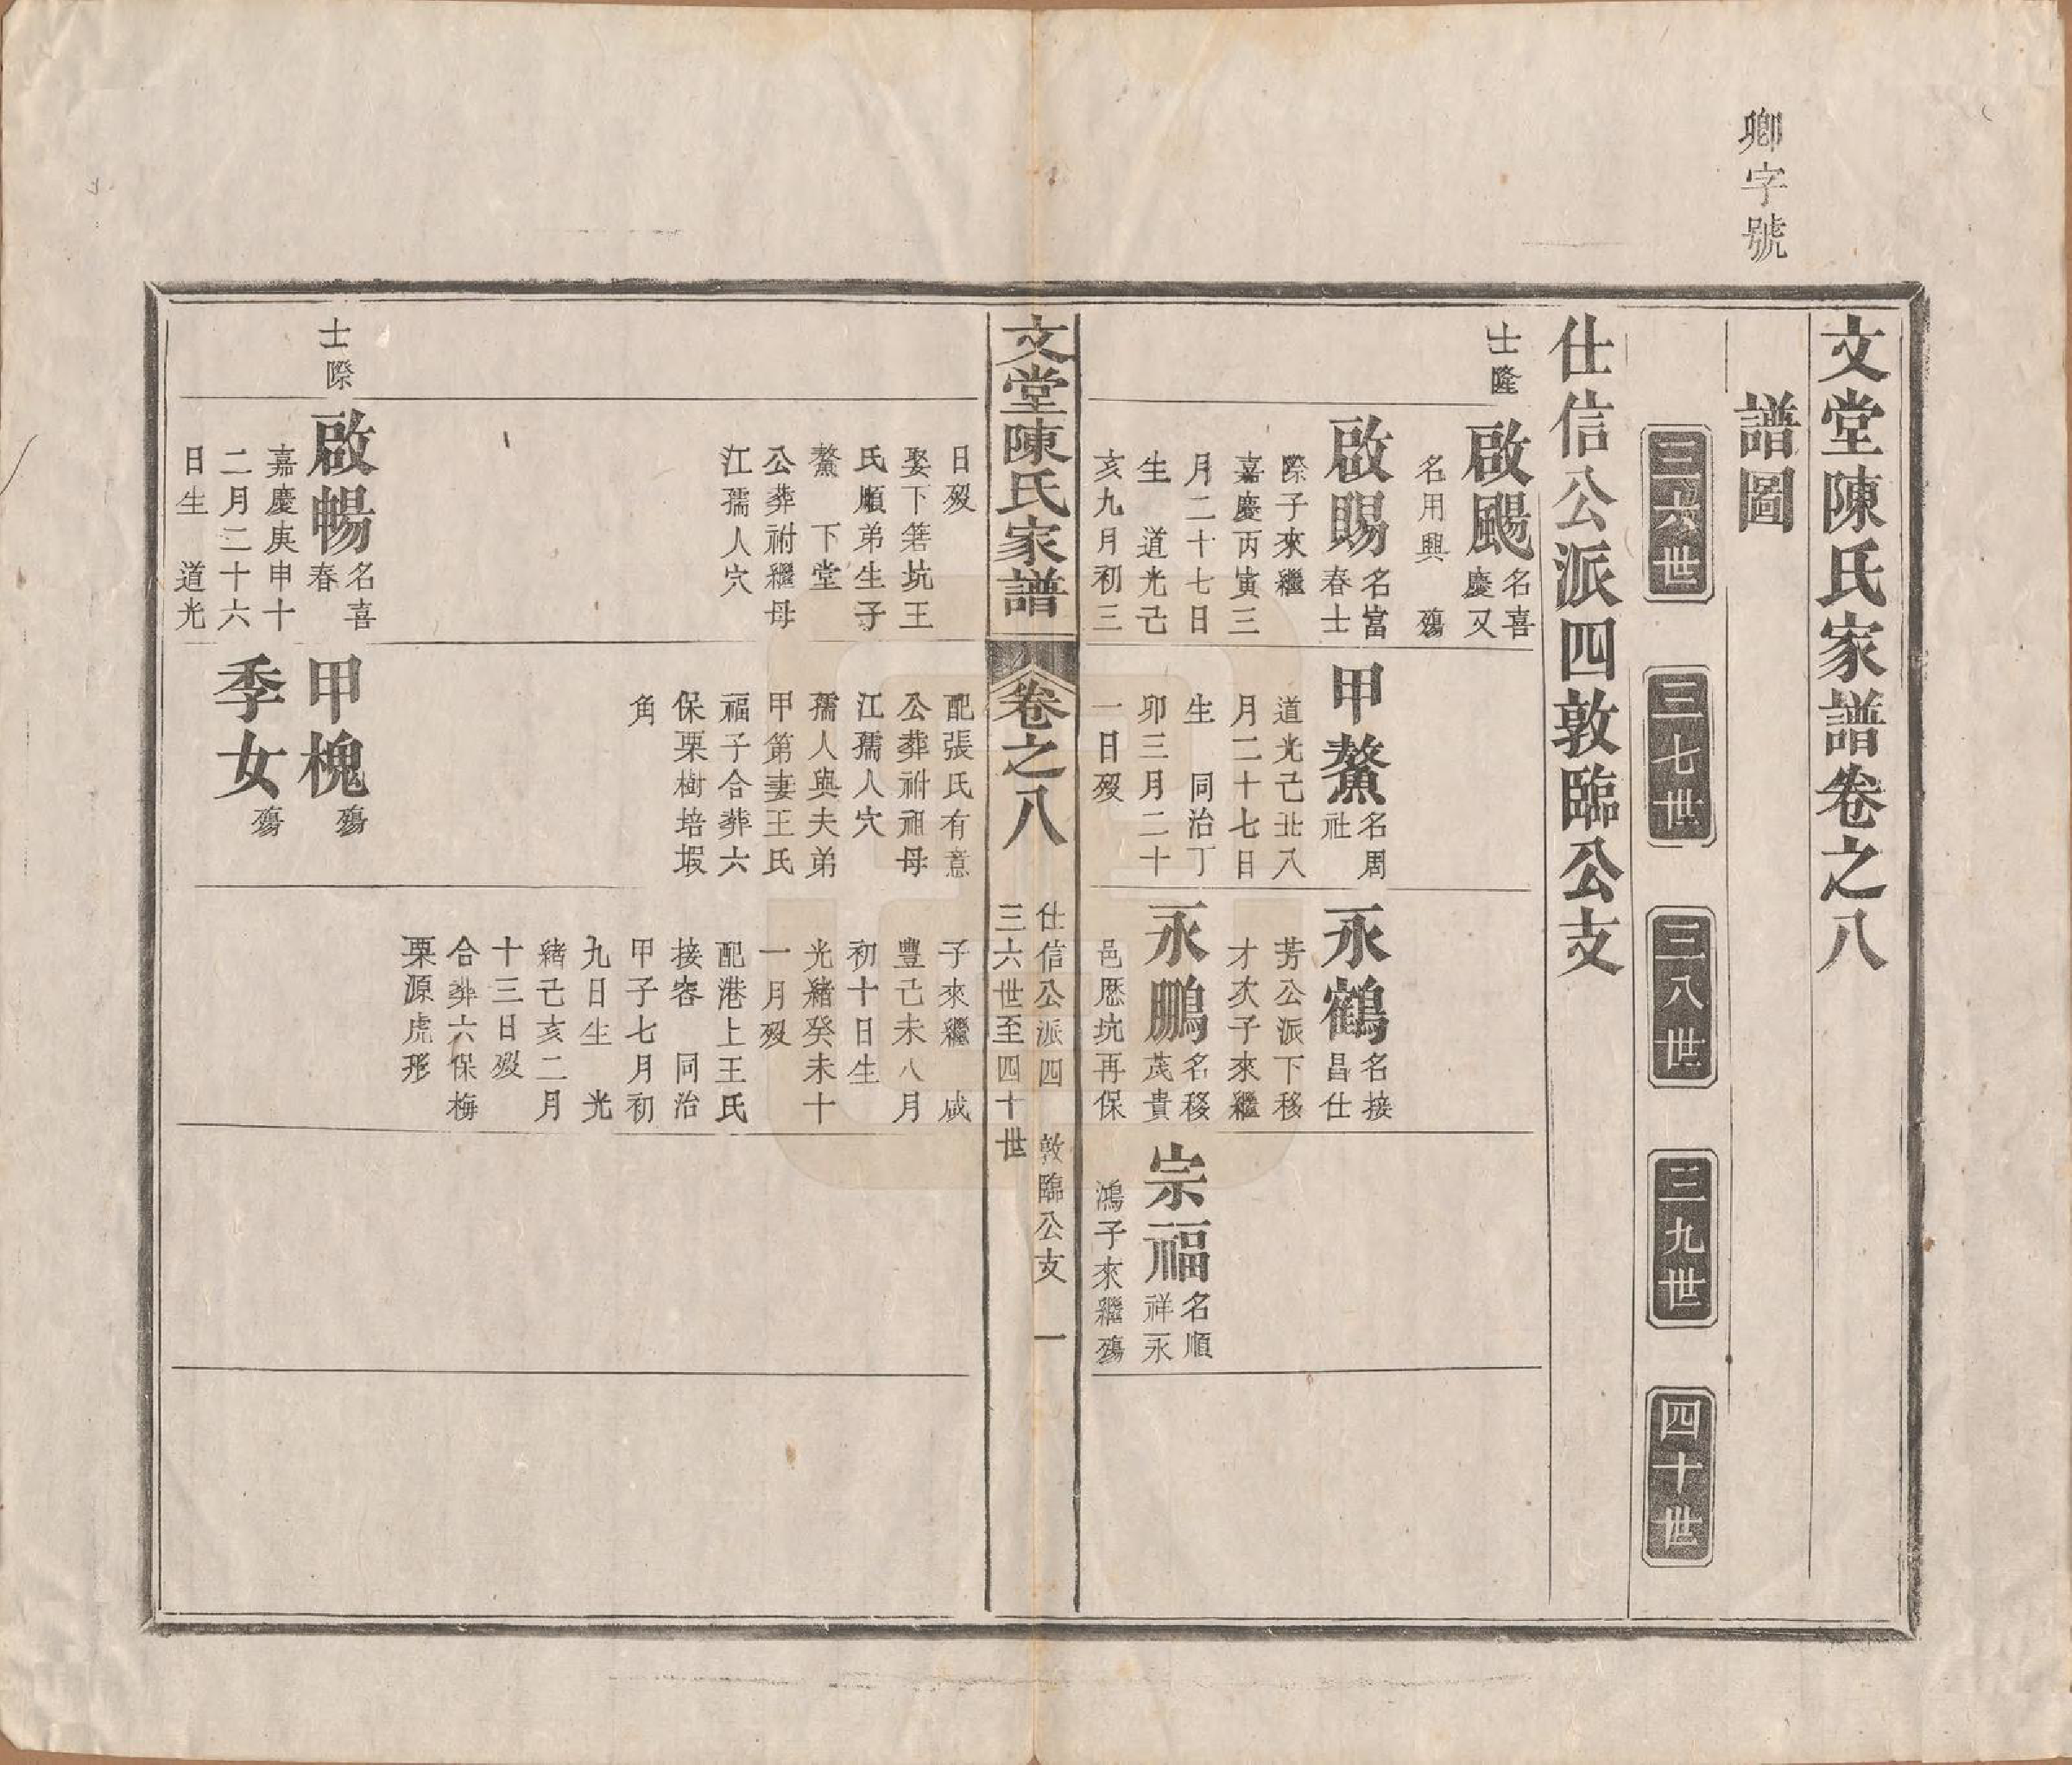 卿字號
文堂陳氏家譜卷之八
譜圖
三六世
三七世
三八世
三九世
四十世
仕信公派四敦臨公支
士隆
啟颺
名喜
慶又
名用興 殤
啟賜
名富
春士
際子來繼
嘉慶丙寅三
月二十七日
生 道光己
亥九月初三
甲鰲
名周
社
道光己丑八
月二十七日
生 同治丁
卯三月二十
一日歿
永鶴
名接
昌仕
芳公派下移
才次子來繼
永鵬
名移
茂貴
邑歷坑再保
宗福
名順
祥永
鴻子來繼殤
文堂陳氏家譜
卷之八
仕信公派四 敦臨公支 一
三六世至四十世
日歿
娶下箬坑王
氏順弟生子
鰲 下堂
公葬祔繼母
江孺人穴
配張氏有意
公葬祔祖母
江孺人穴
孺人與夫弟
甲第妻王氏
福子合葬六
保栗樹培塅
角
子來繼 咸
豐己未八月
初十日生
光緒癸未十
一月歿
配港上王氏
接容 同治
甲子七月初
九日生 光
緒己亥二月
十三日歿
合葬六保梅
栗源虎形
士際
啟暢
名喜
春
嘉慶庚申十
二月二十六
日生 道光
甲槐
殤
季女
殤